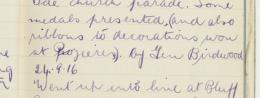 church parade. Some
medals presented, (and also
ribbons to decorations won
at Pozieres). by Gen Birdwood
24.9.16
Went up into line at Bluff